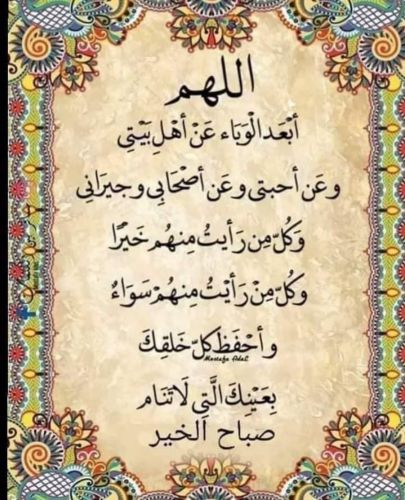 اللهم
أبْعَد الْوَبَاء عَنْ أهْلِ بَيْتِي
وعَن أحبتي وعَن أصْحَابِي وجِيرَانِي
وَكُلّ مِن رَأيتُ مِنهُم خَيْرًا
وكُلّ مِنْ رَأيْتُ مِنهُمْ سَوَاءٌ
وأحْفَظ كلّ خَلقِكَ
Mostafa Adel
بِعَيْنِكَ الَّتِي لَا تنَام
صباح الخير